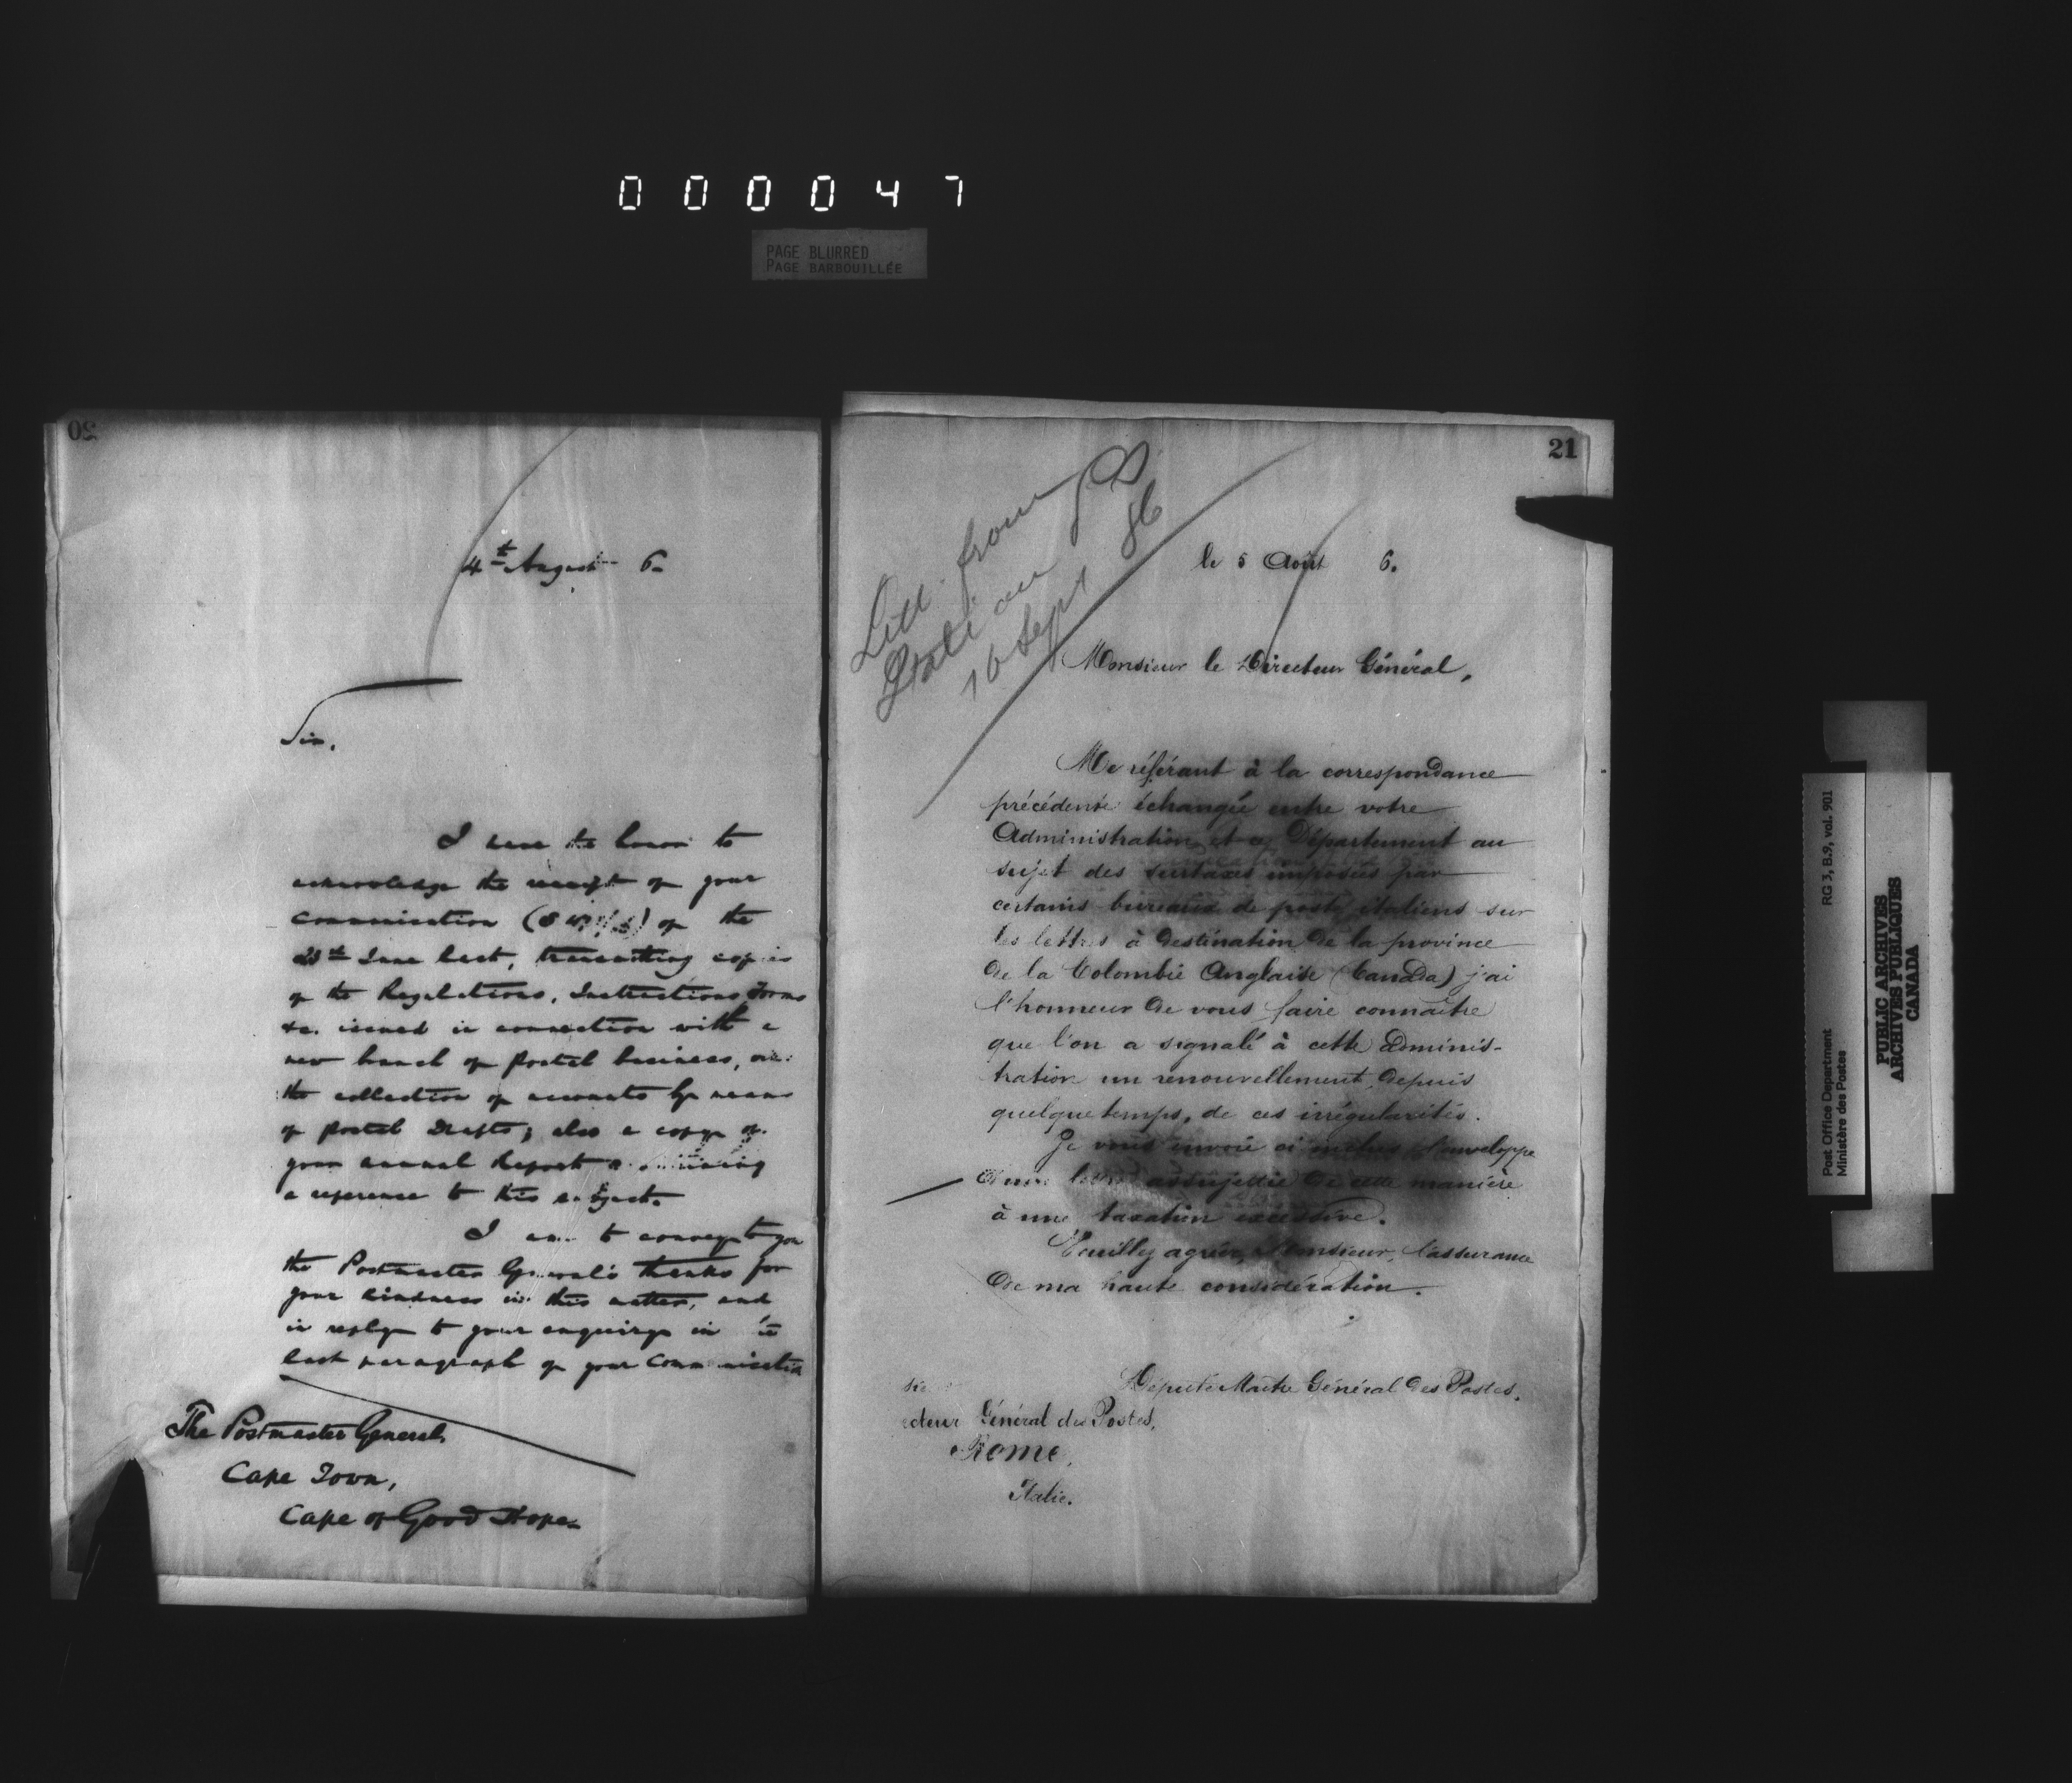 000047
PAGE BLURRED
PAGE BARBOUILLÉE
20
4th August 6.
Sir,
I have the honor to
acknowledge the receipt of your
communication of the
June last, transmitting copies
of the Regulations, Instructions, Forms
&c. issued in connection with a
new branch of Postal business,
the collection of accounts by means
of Postal Drafts; also a copy of
your annual Report
a reference to this subject.
I am to convey to you
the Postmaster General's thanks for
your kindness in this matter, and
in reply to your enquiry in
last paragraph of your communication
The Postmaster General,
Cape Town,
Cape of Good Hope.
21
from
16 Sept 86
le 5 Août 6.
Monsieur le Directeur Général,
Me référant à la correspondance
précédente échangée entre votre
Administration et ce Département au
sujet des surtaxes imposées par
certains bureaux de poste italiens sur
les lettres à destination de la province
de la Colombie Anglaise (Canada) j'ai
l'honneur de vous faire connaître
que l'on a signalé à cette adminis-
tration un renouvellement, depuis
quelque temps, de ces irrégularités.
Je vous envoie ci inclus l'enveloppe
d'une lettre assujettie de cette manière
à une taxation excessive.
Veuillez agréer, Monsieur, l'assurance
de ma haute considération.
Député Maître Général des Postes.
cteur Général des Postes,
Rome,
Italie.
Post Office Department RG 3, B.9, vol. 901
Ministère des Postes
PUBLIC ARCHIVES
ARCHIVES PUBLIQUES
CANADA